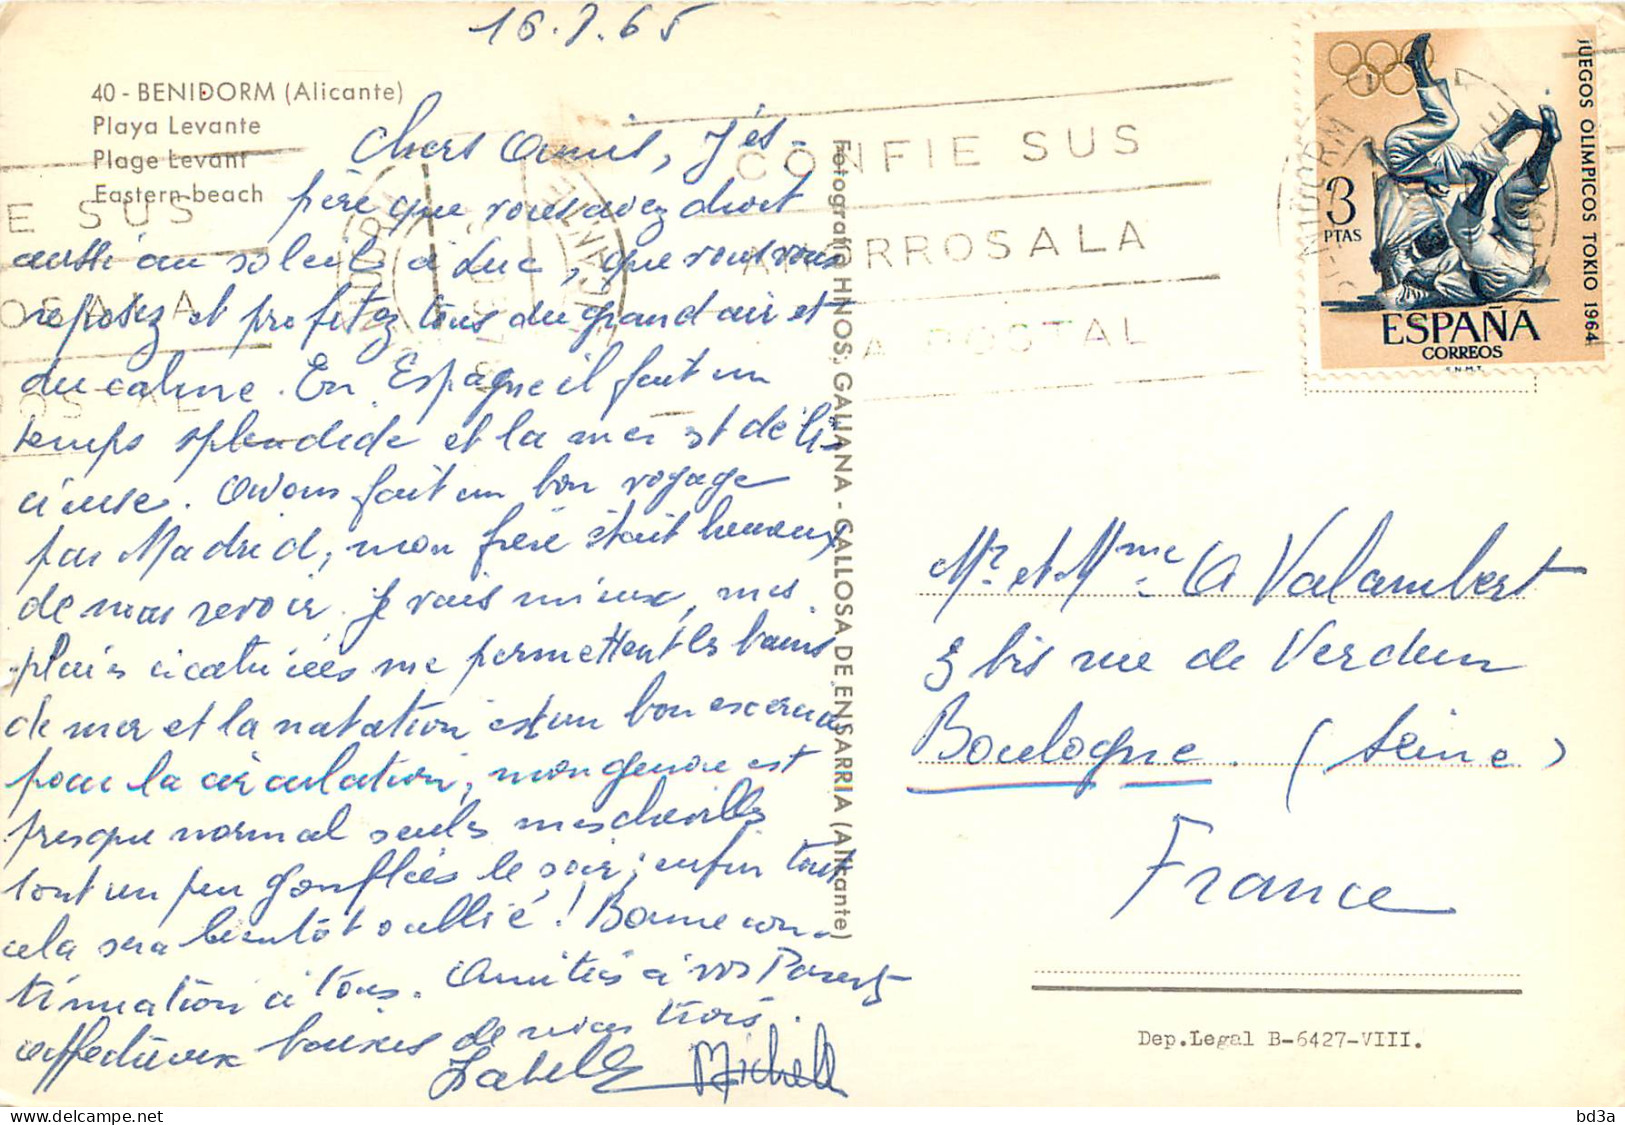 16.7.65
40 - BENIDORM (Alicante)
Playa Levante
Plage Levant
Eastern-beach
chers amis, J'és-
père que vous avez droit
aussi au soleil à Luc, que vous vous
reposez et profitez tous du grand air et
du calme. En Espagne il fait un
temps splendide et la mer est déli-
cieuse. Avons fait un bon voyage
par Madrid, mon frère était heureux
de nous revoir. Je vais mieux, mes
plaies cicatricées me permettent les bains
de mer et la natation est un bon exercice
pour la circulation, mon genou est
presque normal seules mes chevilles
sont un peu gonflées le soir; enfin tout
cela sera bientôt oublié! Bonne con-
tinuation à tous. Amitiés à vos Parents
affectueux baisers de nous trois.
Isabelle Michelle
Fotografía HNOS. GALIANA - CALLOSA DE ENSARRIA (Alicante)
CONFIE SUS
AHORROS A LA
A POSTAL
E SUS
OS A LA
OSTAL
BENIDORM
JUEGOS OLIMPICOS TOKIO 1964
3
PTAS
ESPAÑA
CORREOS
F.N.M.T.
Mr et Mme Valambert
3 bis rue de Verdun
Boulogne. (Seine)
France
Dep.Legal B-6427-VIII.
bd3a